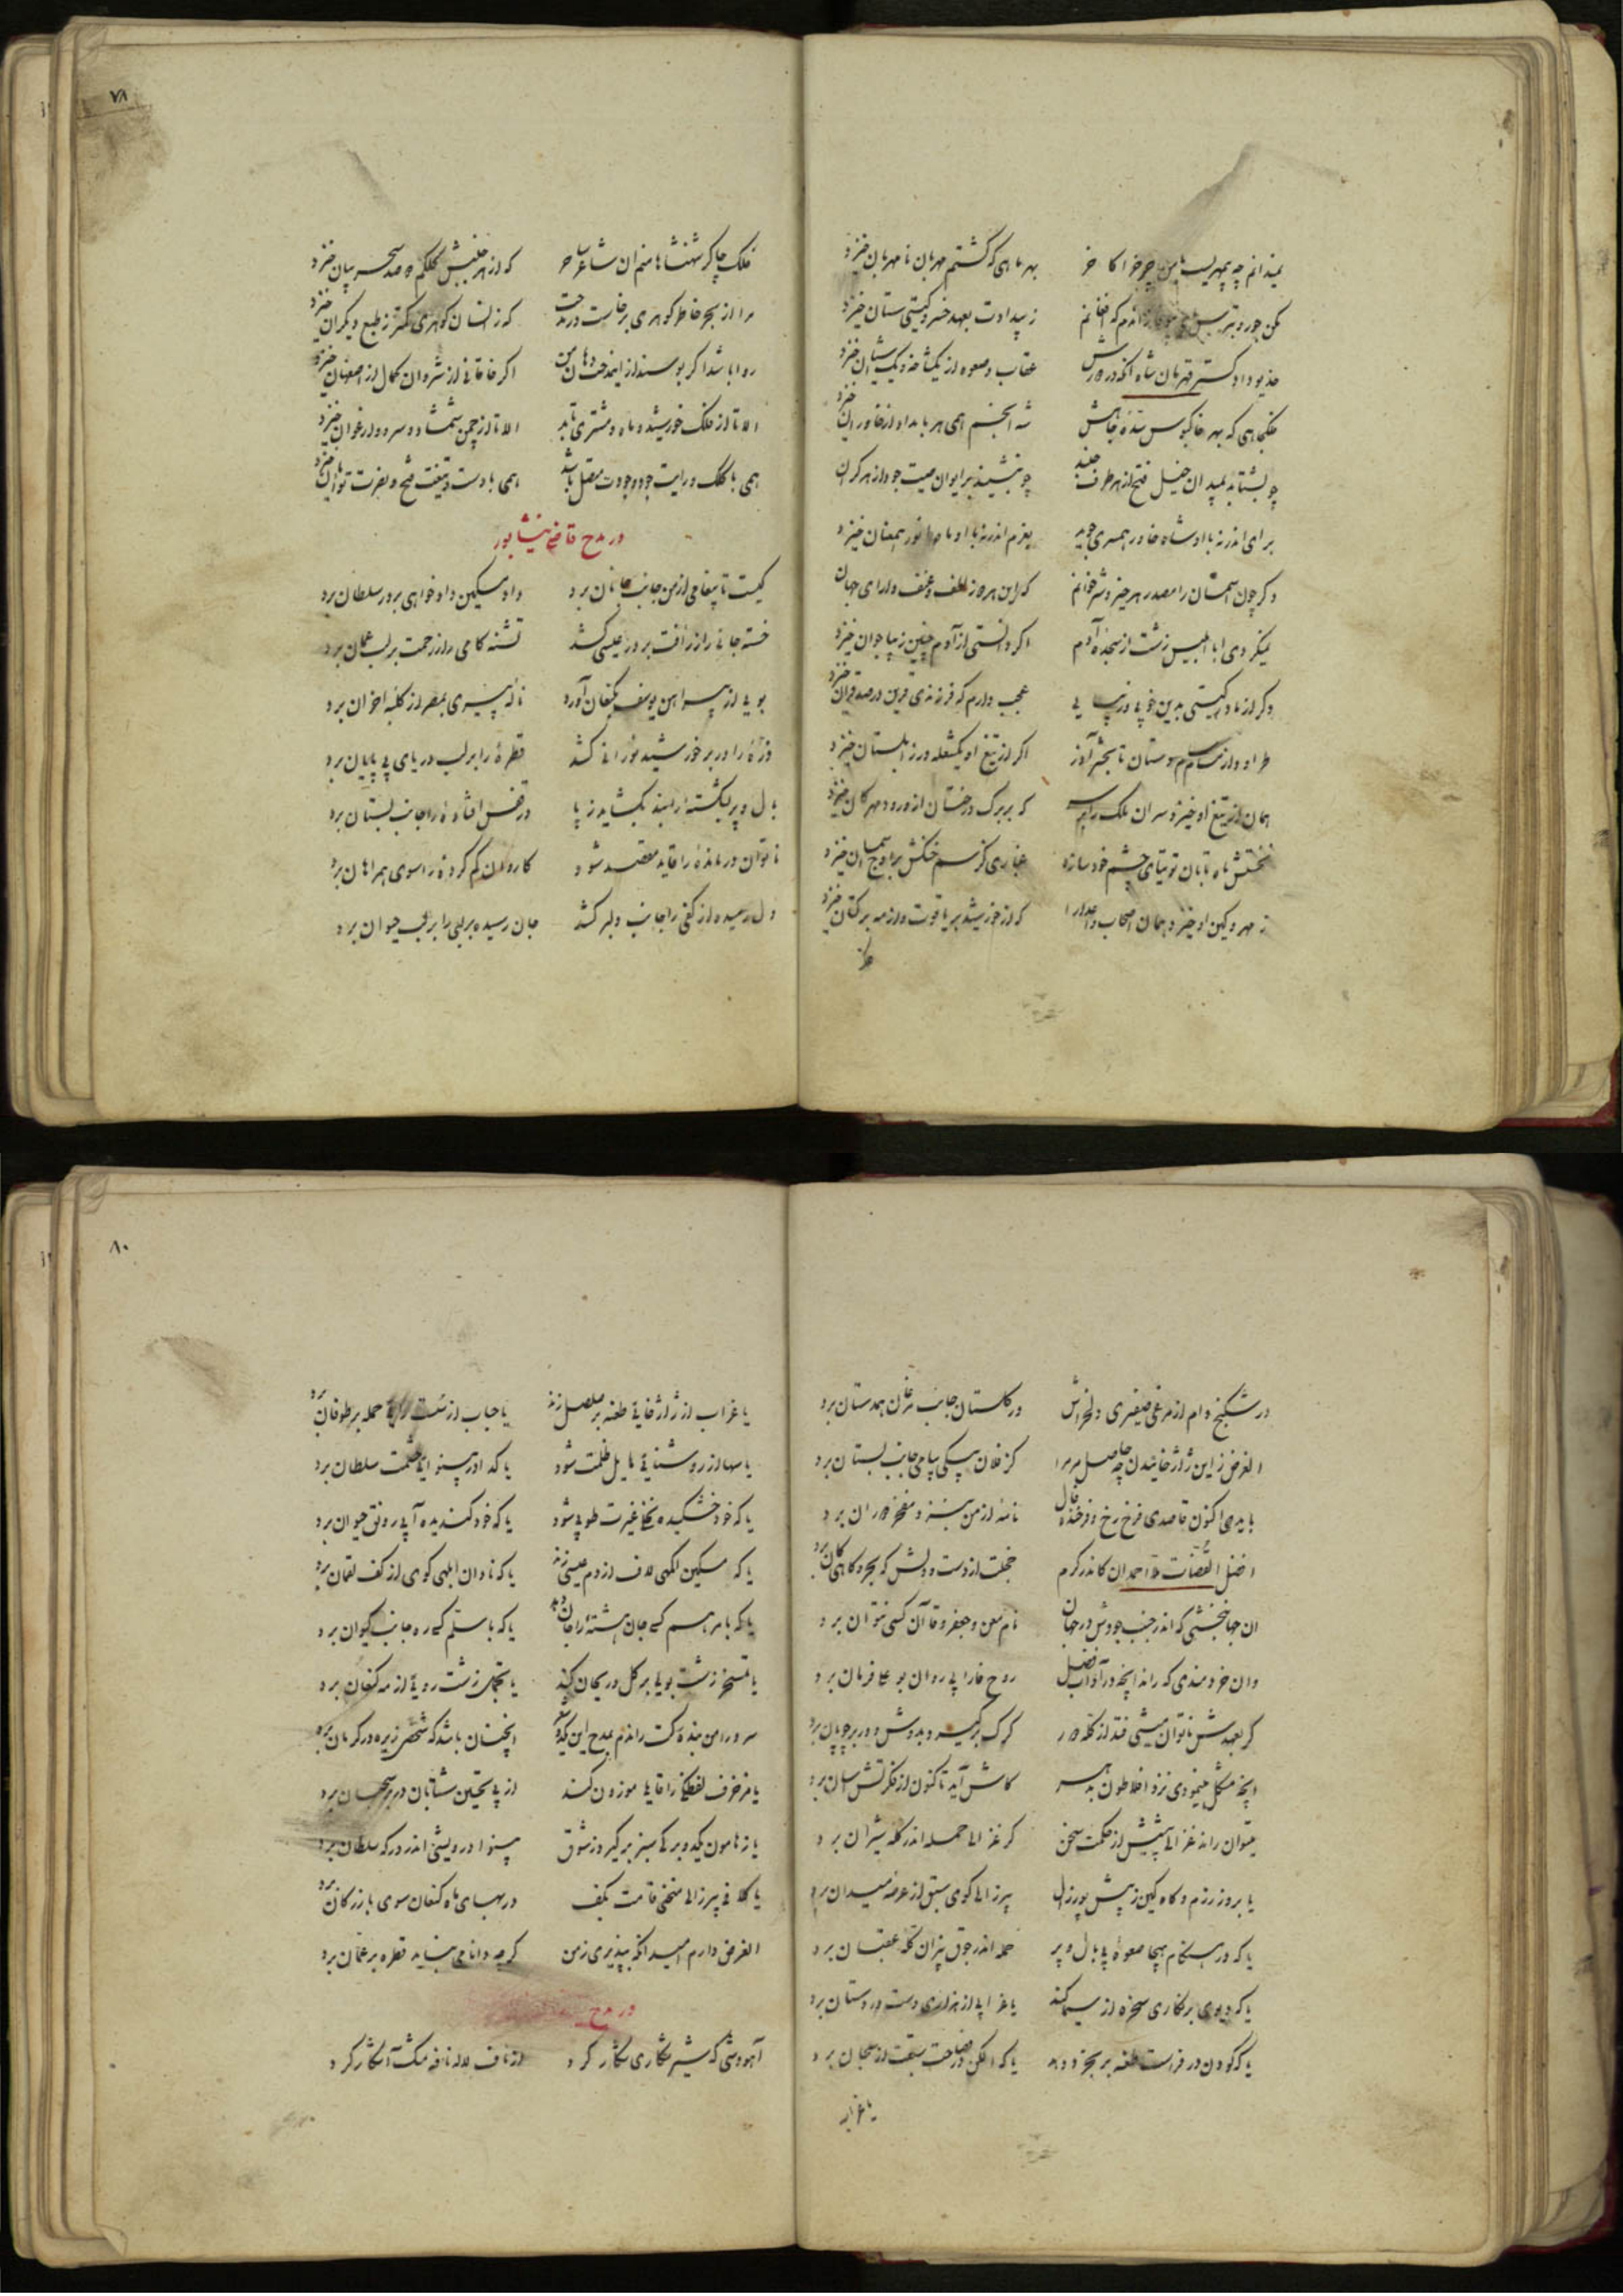 نمیدانم چه بیمهریست با من چرخ را کاخر بهر ماهی که گشتم مهربان نامهربان خیزد
مکن جور و ز بیدادت بعهد خسرو گیتی ستان خیزد
خدیو دادگستر قهرمان شاه آنکه در دورش عقاب و صعوه از یکشاخ و یک آشیان خیزد
که بهر خاکبوس بنده جاهش شه انجم همی هر بامداد از خاوران خیزد
چو بشتابد بمیدان خیل فتح از هر طرف جنبد چو بنشیند بر ایوان صیت جود از هر کران خیزد
برای اندر نه با او شاه خاور همسری جوید بعزم اندر نه با او ماه انور همعنان خیزد
وگر چون آسمان را مصدر هر خیر و شر خوانم که این هر دو ز لطف و عنف دارای جهان
نمیکردی ابا ابلیس زشت از سجده آدم اگر دانستی از آدم چنین زیبا جوان خیزد
وگر از مادر گیتی بدین خوبی و زیبایی عجب دارم که فرزندی قرین در صد قران خیزد
اگر از تیغ او یکشعله در زابلستان خیزد
همان از تیغ او خیزد سران ملک را بر سر که بر برگ درختان از ورود مهرگان خیزد
نختش ماه تابان توتیای چشم خود سازد غباری کز سم خنگش بر اوج آسمان خیزد
ز مهر و کین او خیزد همان احباب و اعدا را که از خورشید بر یاقوت و از مه بر کتان خیزد
۷۸
فلک چاکر شهنشاها منم آن شاعر ساحر که از هر جنبش کلکم دو صد سحر بیان خیزد
مرا از بحر خاطر گوهری برخاست در مدحت که زانسان گوهری کمتر ز طبع دیگران خیزد
روا باشد اگر بوسند از این مدحت دهان من اگر خاقانی از شروان کمال از اصفهان خیزد
الا تا از فلک خورشید و ماه و مشتری تابد الا تا از چمن شمشاد و سرو و ارغوان خیزد
همی با کلک و رایت جود و جودت متصل باشد همی با دست و تیغت فتح و نصرت توامان خیزد
در مدح قاضی نیشابور
کیست تا پیغامی از من جانب جانان برد داد مسکین دادخواهی بر در سلطان برد
خسته جانی را ز رأفت بر در عیسی کشد تشنه کامی را ز رحمت بر لب عمان برد
بویی از پیراهن یوسف بکنعان آورد ناله پیری بمصر از کلبه احزان برد
ذره را در بر خورشید نورانی کشد قطره را بر لب دریای بی پایان برد
بال و پر بشکسته را بند بگشاید ز پا در قفس افتاده را جانب بستان برد
ناتوان درمانده را قاید مقصد شود کاروان گم کرده را سوی همراهان برد
دل رمیده از کفی را جانب دلبر کشد جان رسیده بر لبی را بر لب حیوان برد
در شکنج دام از مرغی صفیری دلخراش در گلستان جانب مرغان همدستان برد
الغرض زاین ژاژخائیدن چه حاصل مر مرا کز فلان پیکی پیامی جانب بستان برد
باید می اکنون قاصدی فرخ رخ و فرخنده فال نامه از من به
افضل القضات ملا احمد آن کاندر کرم خجلت از دست و دلش که بحر و گاهی کان برد
آن جهانبخشی که اندر جنب جودش در جهان نام معن و جعفر و قاآن کسی نتوان برد
وان خردمندی که راند آنچه در آداب فضل روح فارابی روان بوعلی فرمان برد
گر بعهدش ناتوان میشی فتد از گله دور گرگ برگیرد و بدوش و در بر چوپان برد
آنچه مشکل مینمودی نزد افلاطون کاش آید تا کنون از فکرتش آسان برد
میتوان راند غزالی پیشش از حکمت سخن گر غزالی حمله اندر گله شیران برد
یا بروز رزم و گاه کین ز پیش پور زال پیر زالی گوی سبق از عرصه میدان برد
یا که در هنگام هیجا صعوه بی بال و پر حمله اندر جوق گله عقبان برد
یا که دیوی بر نکاری سخره از سیما کند یا غرابی از هزاری دست در دستان برد
یا که کودن در فراست طعنه بر بخرد دهد یا که الکن در فصاحت سبقت از سحبان برد
یا غراب
۸۰
یا غراب از ژاژخایی طعنه بر صلصل زند یا حباب از سست رایی حمله بر طوفان برد
یا سها از روشنایی مایل ظلمت شود یا گدا در پیش حشمت سلطان برد
یا که خود خشکیده نخلی غیرت طوبی شود یا که خود گندیده آبی رونق حیوان برد
یا که مسکین ابلهی لاف از دم عیسی زند یا که نادان ابلهی گوی از کف لقمان برد
یا که با مرهم کسی جان هشته را جان دهد یا که با سلم کسی ره جانب کیوان برد
یا تمسخر زشت بویی بر گل و ریحان کند یا تجمل زشت رویی از مه کنعان برد
سرورا من بنده کت راندم بمدح این چکامه آنچنان باشد که شخصی زیره در کرمان برد
یا مزخرف لفظی را قایلها موزون کند از پی تحسین شتابان در بر سحبان برد
یا ز هامون گیرد و برگی سبز برگیرد ز شوق بینوا درویشی اندر درگه سلطان برد
یا کلافی پیرزالی منحنی قامت بکف در بهای ماه کنعان سوی بازرگان برد
الغرض دارم امید آنکه بپذیری ز من گرچه دانا می نباید قطره بر عمان برد
در مدح
آهو وشی که شیر شکاری شکار کرد از ناف لاله نافه مشک آشکار کرد